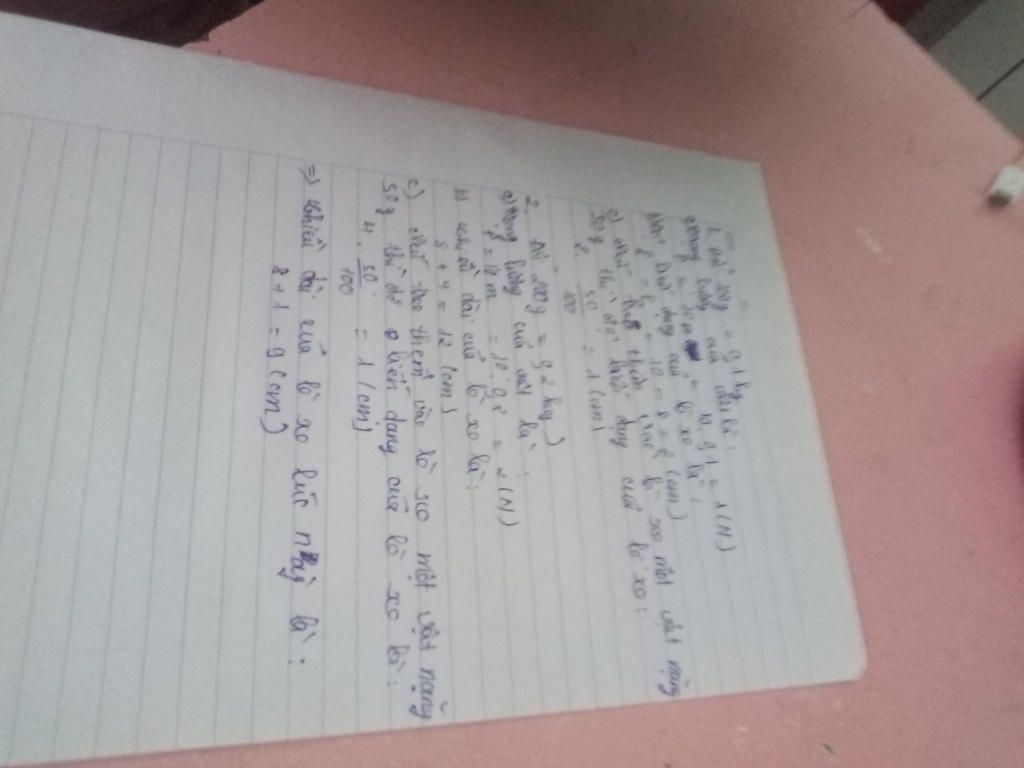 1. Đổi 100g = 0,1kg
a) trọng lượng của vật là:
P = 10m = 10.0,1 = 1(N)
b) độ biến dạng của lò xo là:
l - l = 10 - 8 = 2 (cm)
c) Nếu treo thêm vào lò xo một vật nặng
50g thì độ biến dạng của lò xo:
2. 50/100 = 1 (cm)
2. Đổi 200g = 0,2kg
a) trọng lượng của vật là:
P = 10m = 10.0,2 = 2(N)
b) chiều dài của lò xo là:
8 + 4 = 12 (cm)
c) Nếu treo thêm vào lò xo một vật nặng
50g thì độ biến dạng của lò xo là:
4. 50/100 = 1 (cm)
=> chiều dài của lò xo lúc này là:
8 + 1 = 9 (cm)